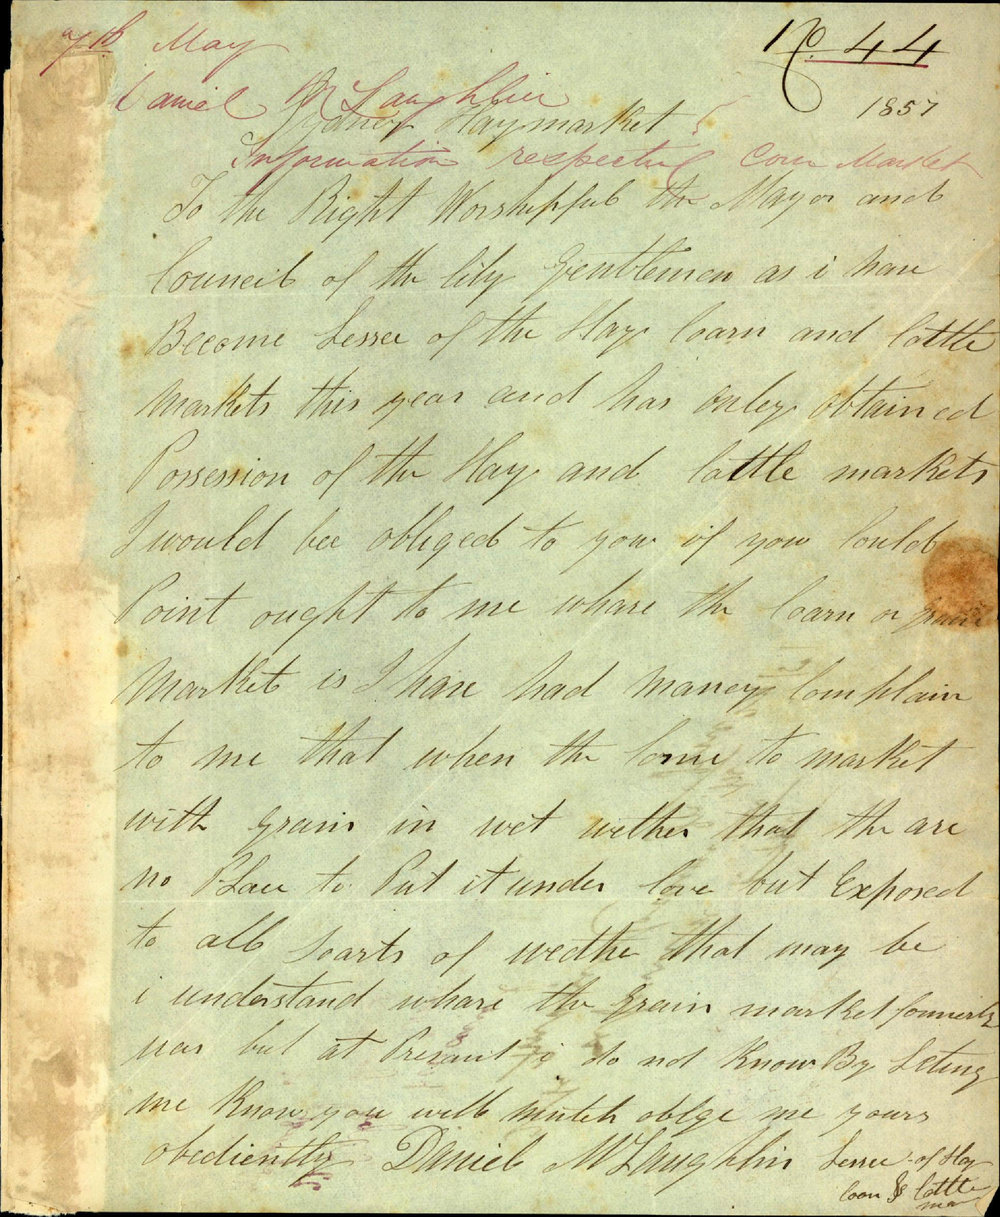 7th May
No. 44
Daniel McLaughlin
1857
Sydney Haymarket
Information respecting Corn Market
To the Right Worshipful the Mayor and
Council of the City Gentlemen as i have
Become Lessee of the Hay Coarn and Cattle
markets this year and has onley obtained
Possession of the Hay and Cattle markets
I would bee obliged to you if you Could
Point ought to me whare the Coarn or grain
Market is I have had maney Complain
to me that when the Come to market
with grain in wet wether that the are
no Place to Put it under Cove but Exposed
to all soarts of wedthe that may be
i understand whare the grain market formerly
was but at Present i do not know By Leting
me know you will mutch oblge me yours
obediently Daniel McLaughlin Lessee of Hay
Coarn & Cattle
mar